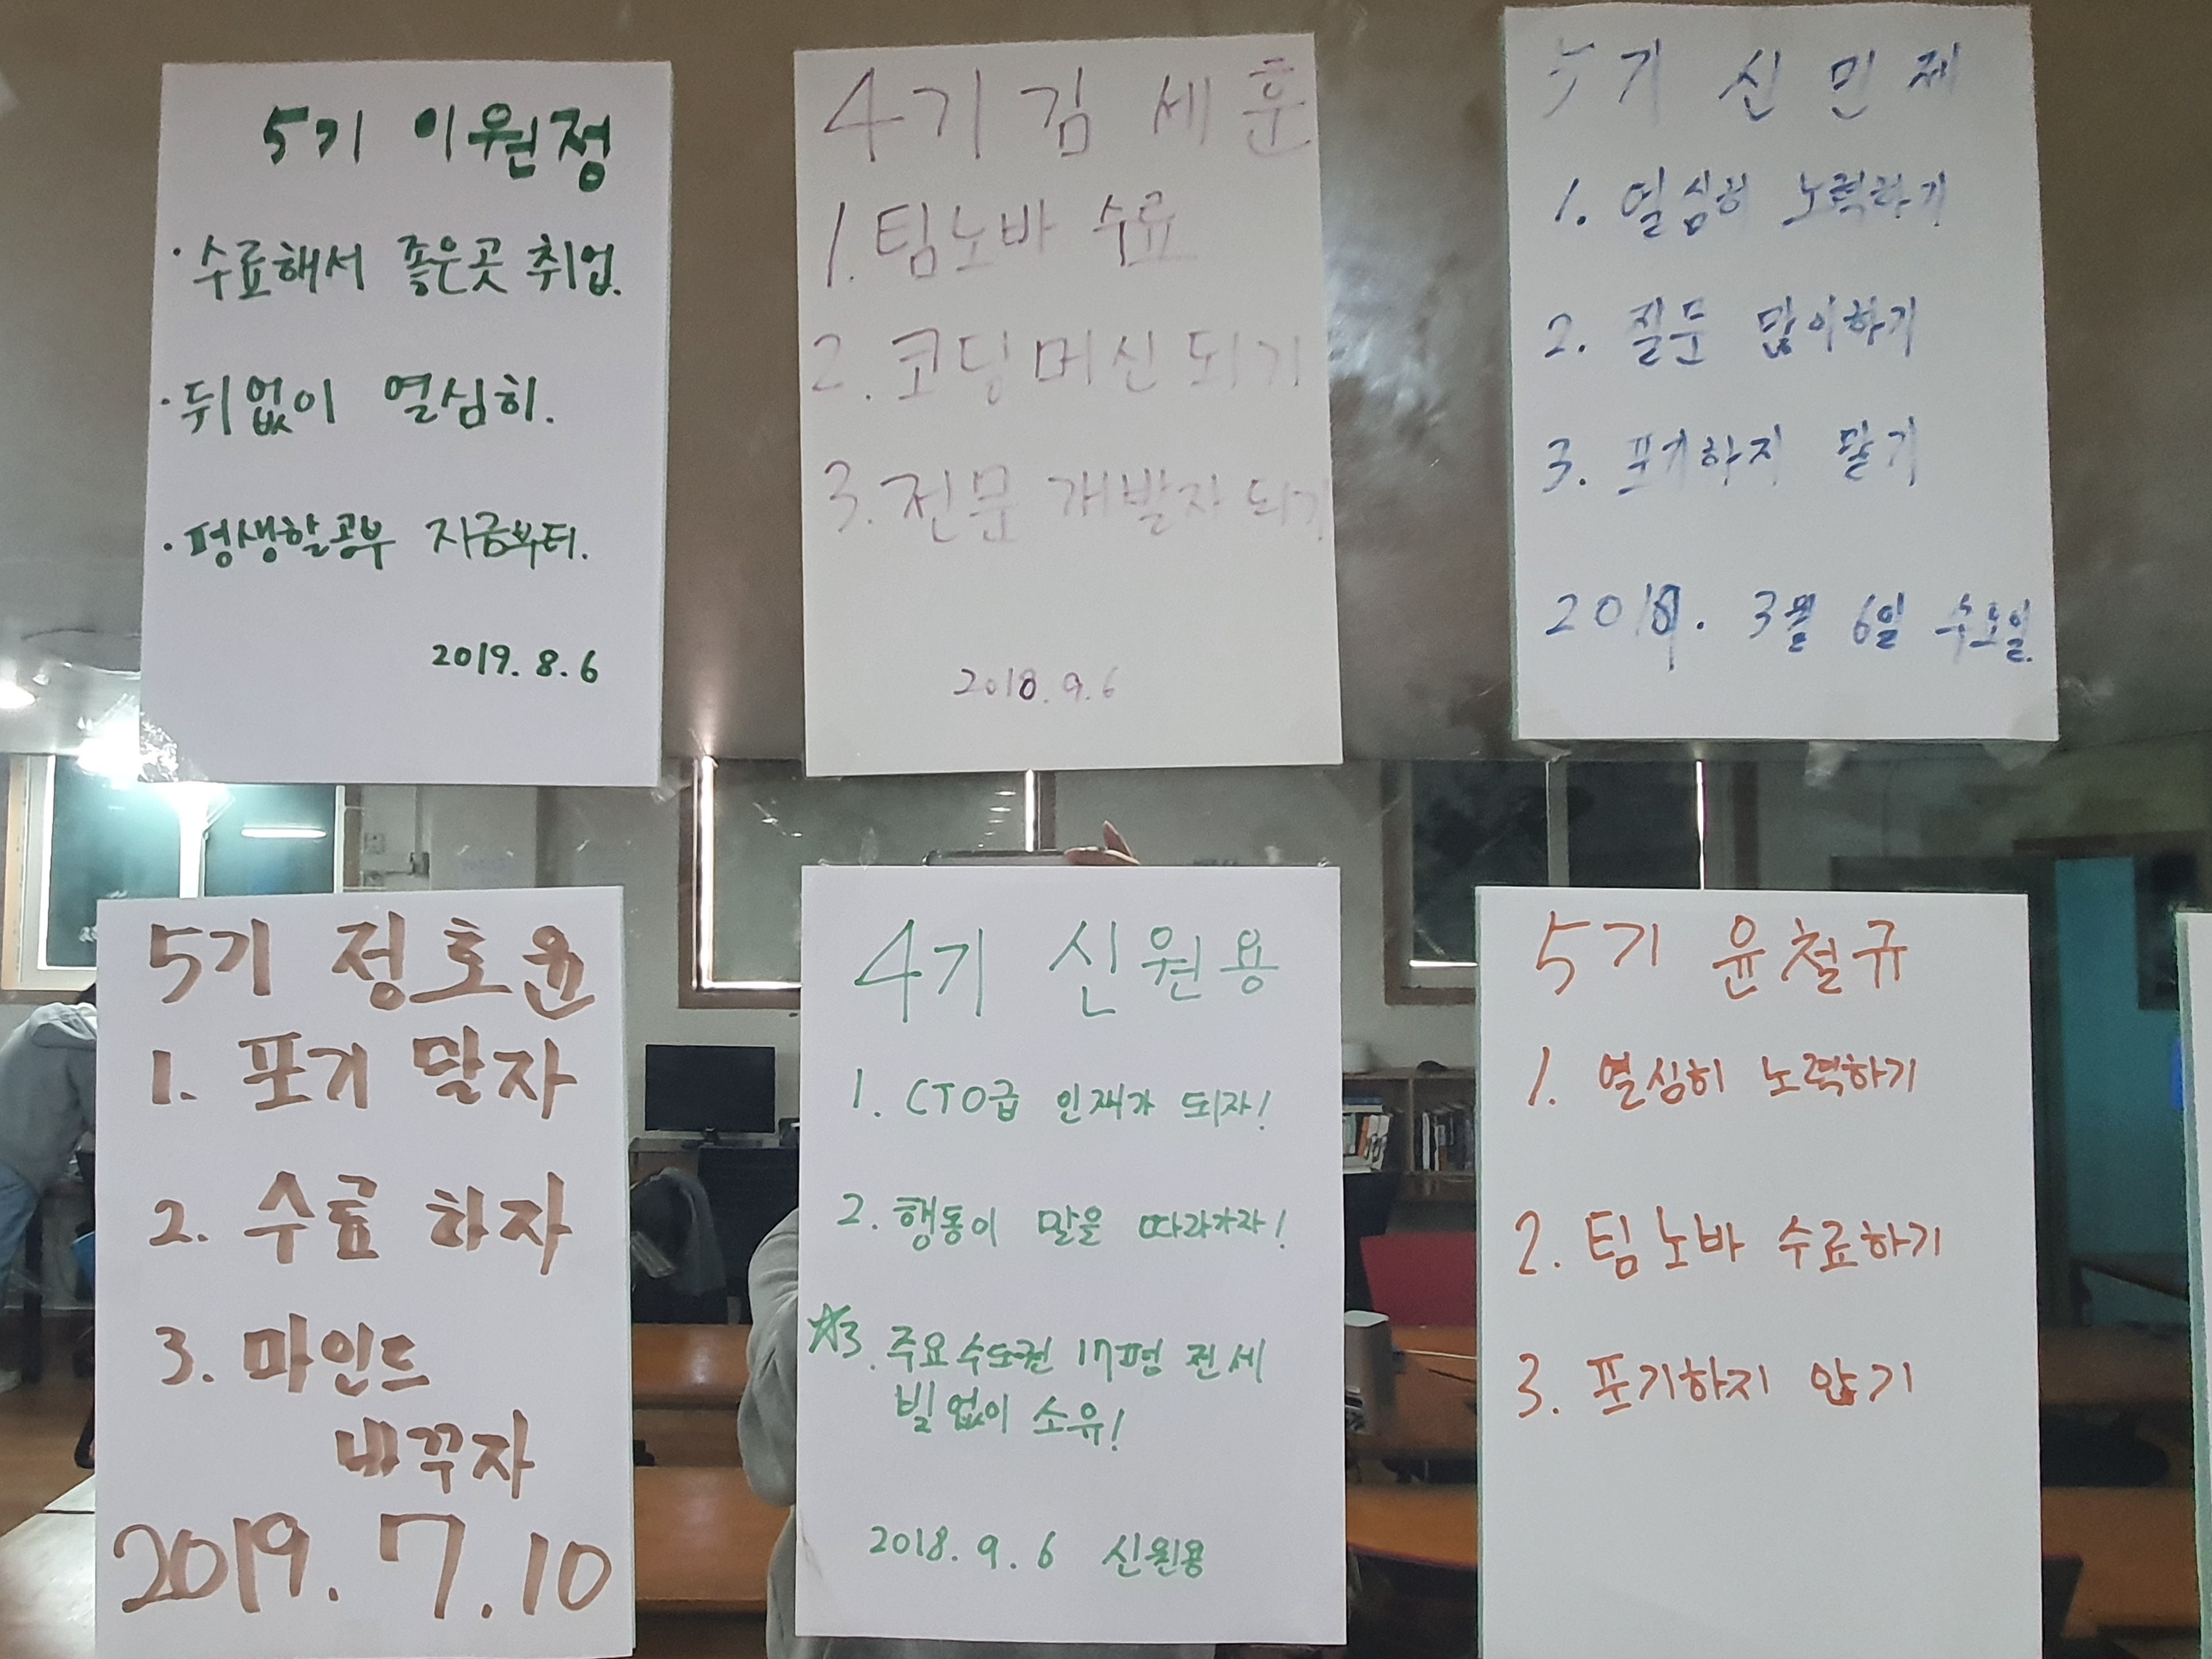 5기 이원정
· 수료해서 좋은곳 취업.
· 뒤없이 열심히.
· 평생할공부 지금부터.
2019. 8. 6
4기 김세훈
1. 팀노바 수료
2. 코딩머신되기
3. 전문 개발자되기
2018. 9. 6
5기 신민제
1. 열심히 노력하기
2. 질문 많이하기
3. 포기하지 말기
2019. 3월 6일 수요일
5기 정호윤
1. 포기 말자
2. 수료 하자
3. 마인드
바꾸자
2019. 7. 10
4기 신원용
1. CTO급 인재가 되자!
2. 행동이 말을 따라가자!
☆3. 주요수도권 17평 전세
빌없이 소유!
2018. 9. 6 신원용
5기 윤철규
1. 열심히 노력하기
2. 팀노바 수료하기
3. 포기하지 않기